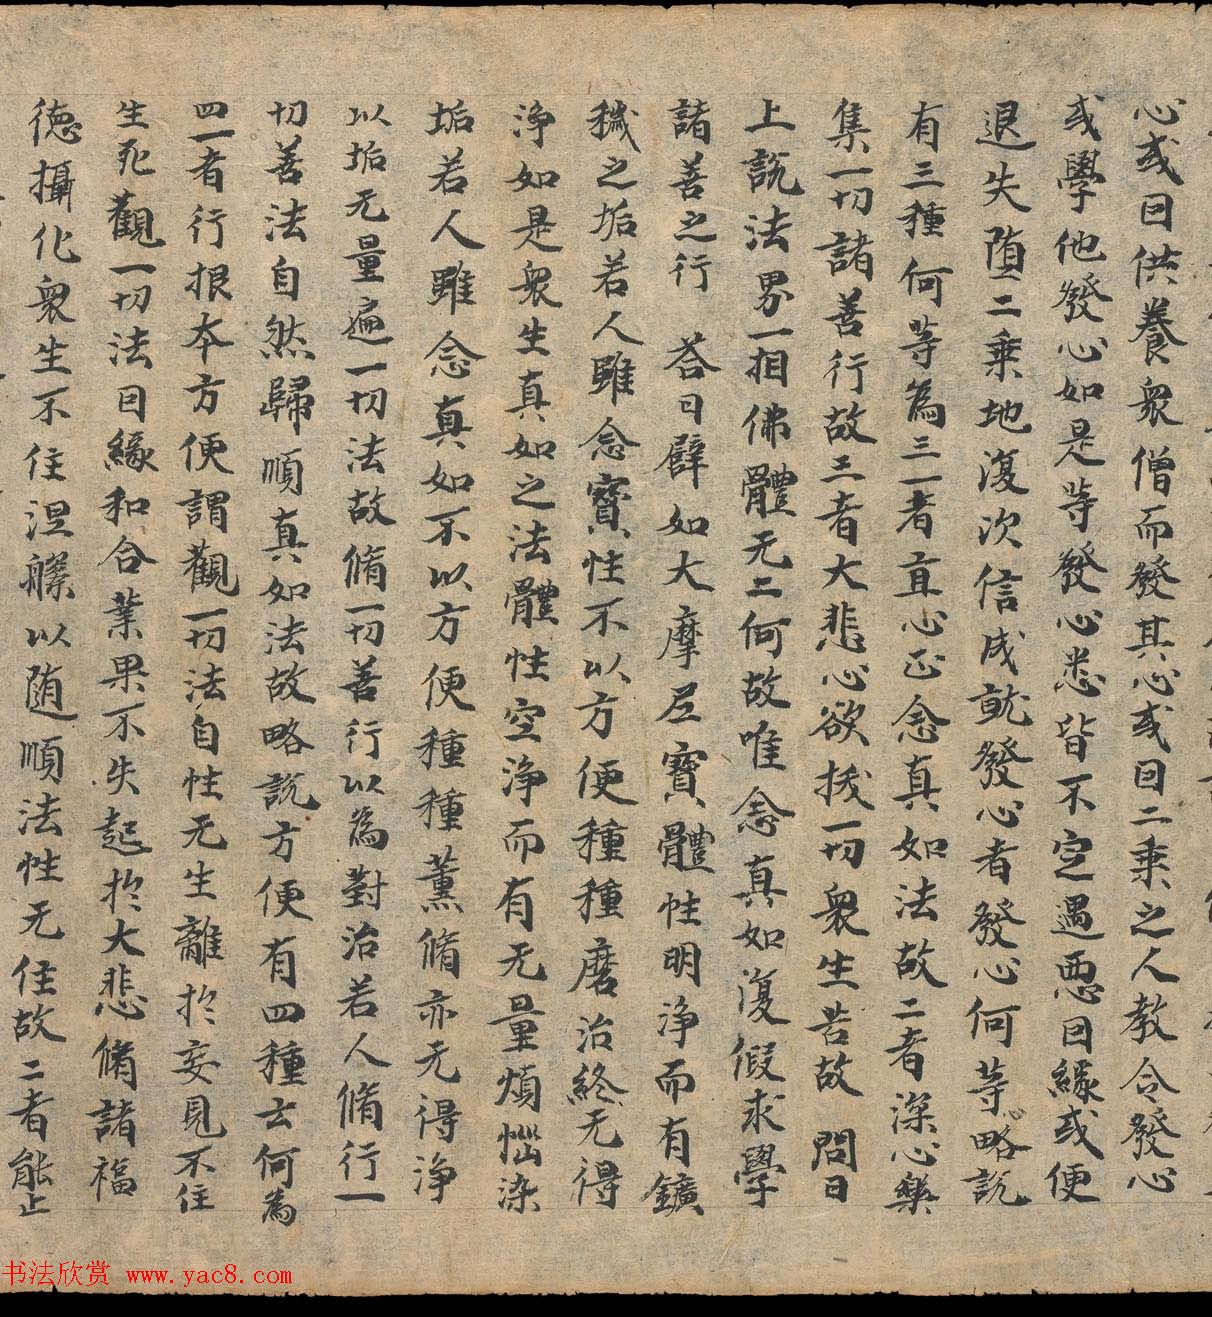 心或因供養衆僧而發其心或因二乘之人教令發心
或學他發心如是等發心悉皆不定遇惡因緣或便
退失墮二乘地復次信成就發心者發心何等略說
有三種何等為三一者直心正念真如法故二者深心樂
集一切諸善行故三者大悲心欲拔一切衆生苦故 問曰
上說法界一相佛體无二何故唯念真如復假求學
諸善之行 荅曰辟如大摩尼寶體性明淨而有鑛
穢之垢若人雖念寶性不以方便種種磨治終无得
淨如是衆生真如之法體性空淨而有无量煩惱染
垢若人雖念真如不以方便種種薰脩亦无得淨
以垢无量遍一切法故脩一切善行以為對治若人脩行一
切善法自然歸順真如法故略說方便有四種云何為
四一者行根本方便謂觀一切法自性无生離於妄見不住
生死觀一切法因緣和合業果不失起於大悲脩諸福
德攝化衆生不住涅槃以随順法性无住故二者能止
书法欣赏 www.yac8.com